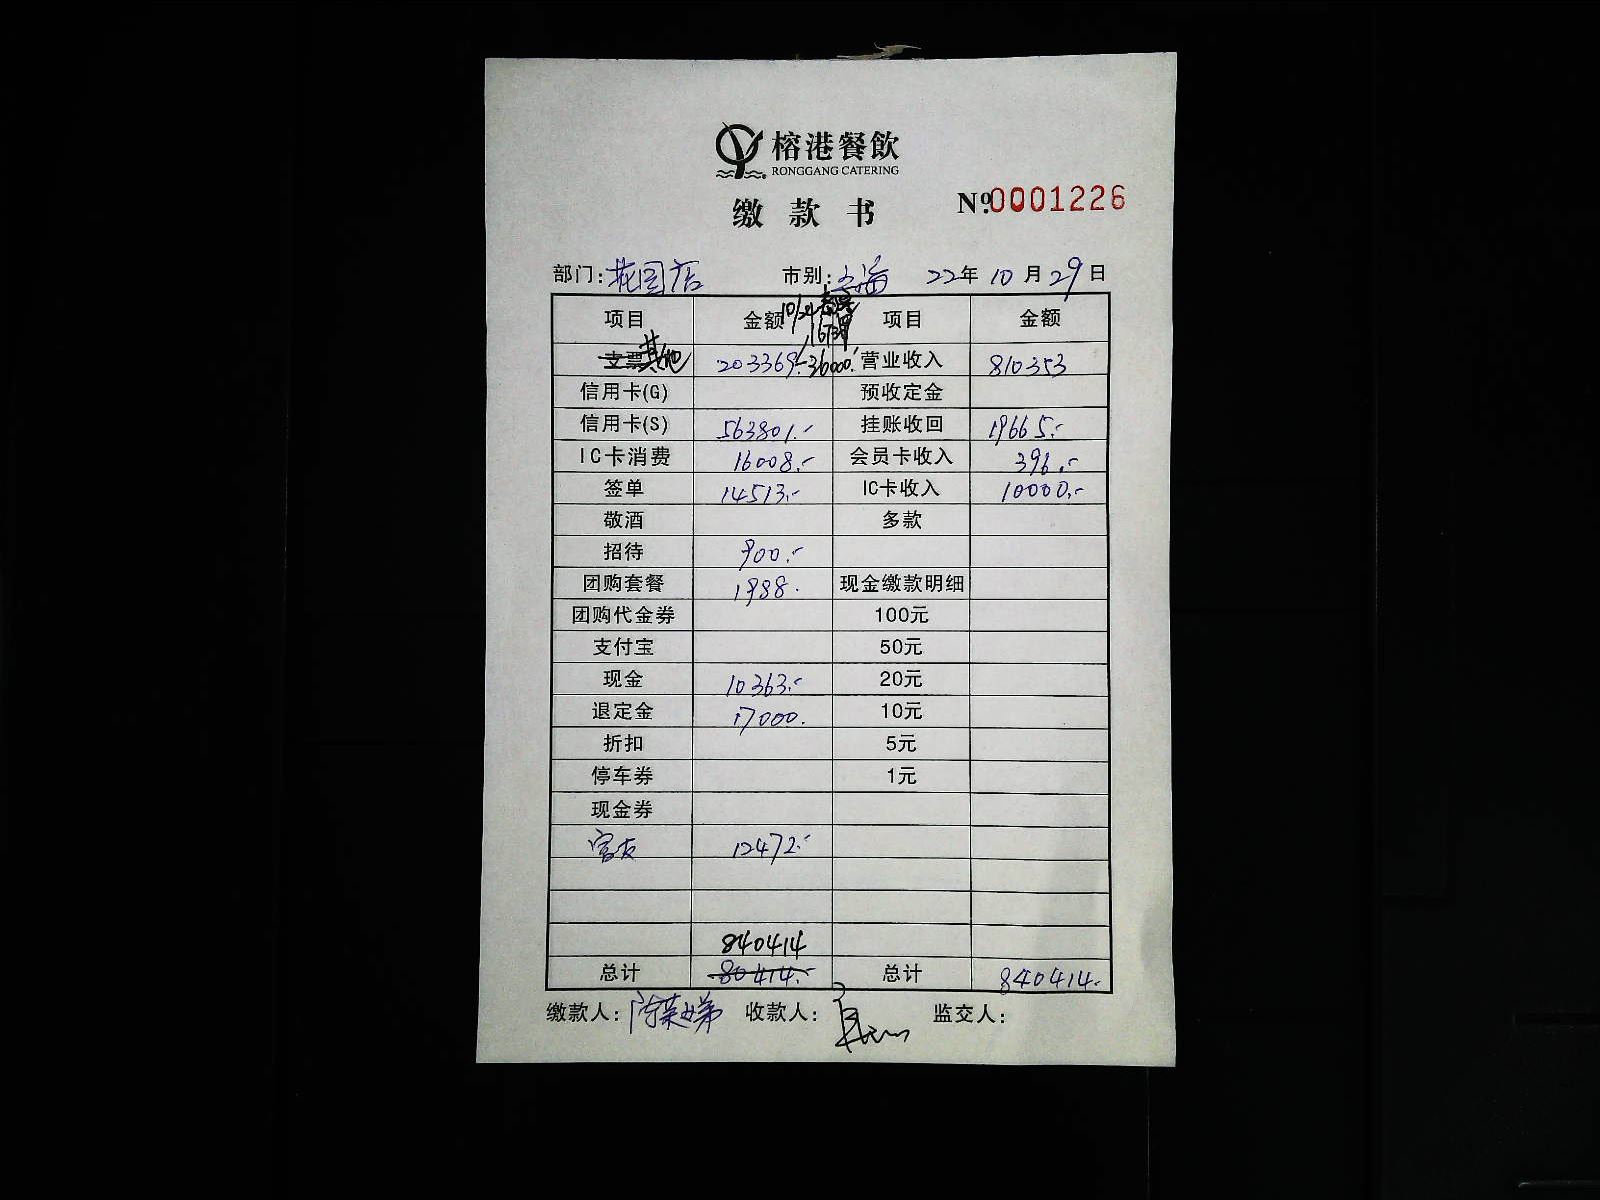 榕港餐飲
RONGGANG CATERING
缴款书
№0001226
部门:花园店 市别:上海 22年10月29日
项目 金额 10/24 项目 金额
支票其他 203369.-36000. 营业收入 810353
信用卡(G) 预收定金
信用卡(S) 563801.- 挂账收回 19665.-
IC卡消费 16008.- 会员卡收入 396.-
签单 14513.- IC卡收入 10000.-
敬酒 多款
招待 900.-
团购套餐 1988. 现金缴款明细
团购代金券 100元
支付宝 50元
现金 10363.- 20元
退定金 17000. 10元
折扣 5元
停车券 1元
现金券
12472.-
840414
总计 80414.- 总计 840414.
缴款人: 收款人: 监交人: